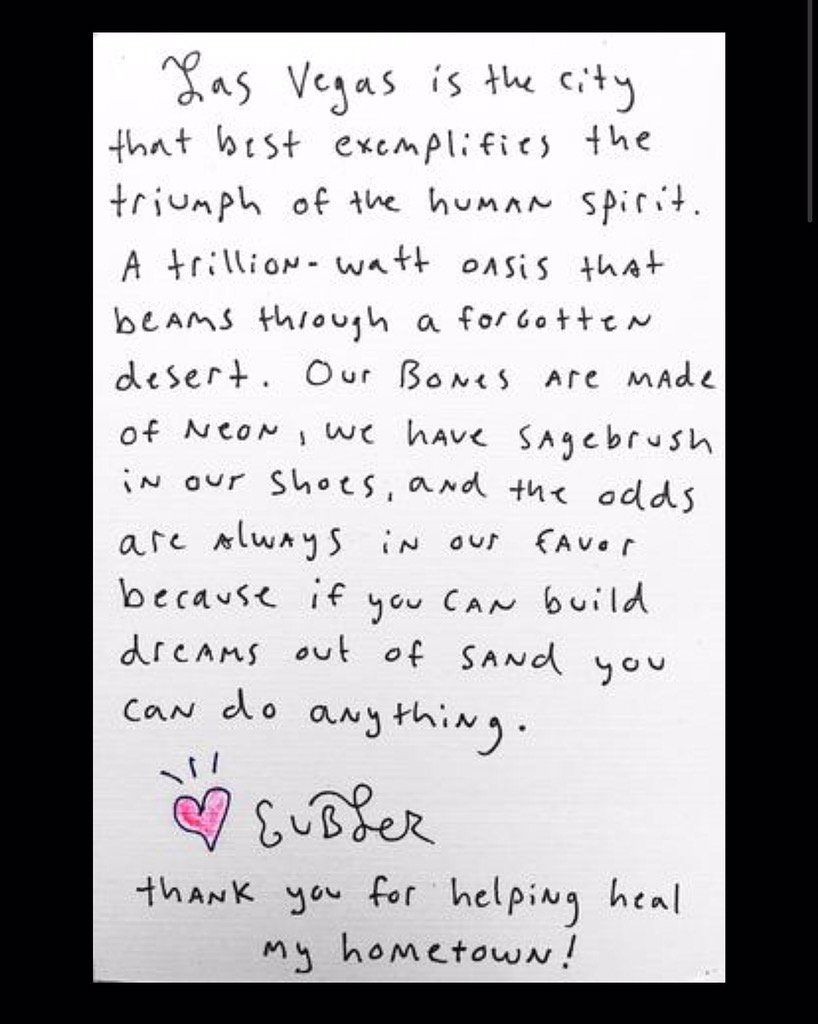 Las Vegas is the city
that best exemplifies the
triumph of the human spirit.
A trillion-watt oasis that
beams through a forgotten
desert. Our Bones are made
of Neon, we have sagebrush
in our shoes, and the odds
are always in our favor
because if you can build
dreams out of sand you
can do anything.
GUBLER
thank you for helping heal
my hometown!